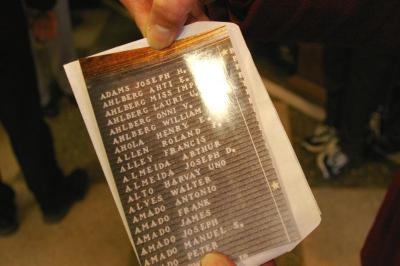 ADAMS JOSEPH H.
AHLBERG AHTI E.
AHLBERG MISS IMP
AHLBERG LAURI U.
AHLBERG ONNI V.
AHLBERG WILLIAM
AHOLA HENRY E.
ALLEN ROLAND
ALLEY FRANCIS
ALMEIDA ARTHUR
ALMEIDA JOSEPH D.
ALTO HARVAY UNO
ALVES WALTER
AMADO ANTONIO
AMADO FRANK
AMADO JAMES
AMADO JOSEPH
AMADO MANUEL S.
AMADO PETER